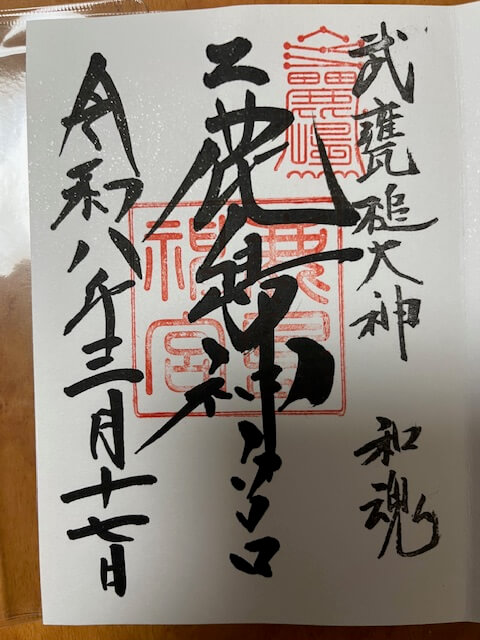 武甕槌大神 和魂
鹿島神宮
令和八年三月十七日